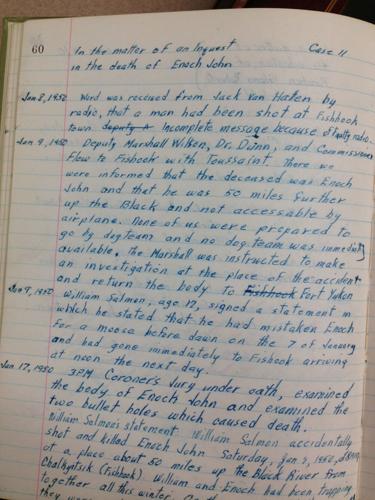 60
In the matter of an Inquest Case 11
in the death of Enoch John
Jan 8, 1950 Word was received from Jack Van Hatten by
radio, that a man had been shot at Fishhook
town Deputy A Incomplete message because of faulty radio.
Jan 9, 1950 Deputy Marshall Wilken, Dr. Dunn, and Commissioner
flew to Fishook with Toussaint. There we
were informed that the deceased was Enoch
John and that he was 50 miles further
up the Black and not accessable by
airplane. None of us were prepared to
go by dogteam and no dog team was immediatly
available. The Marshall was instructed to make
an investigation at the place of the accident
and return the body to Fishhook Fort Yukon
Jan 9, 1950 William Salmon, age 17, signed a statement in
which he stated that he had mistaken Enoch
for a moose before dawn on the 7 of January
and had gone immediately to Fishook arriving
at noon the next day.
Jan. 17, 1950 3PM. Coroner's Jury under oath, examined
the body of Enoch John and examined the
two bullet holes which caused death.
William Salmon's statement. William Salmon accidentally
shot and killed Enoch John Saturday, Jan 7, 1950,
at a place about 50 miles up the Black River from
Chalkyitsik (Fishhook). William and Enoch had been trapping
together all this winter.
they